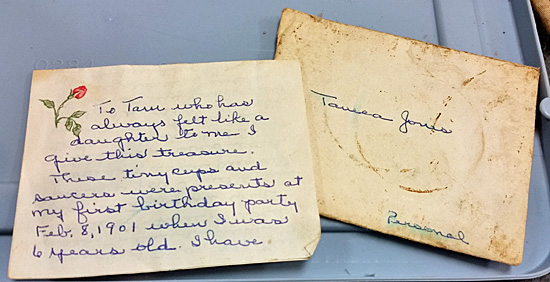 To Tam who has
always felt like a
daughter to me I
give this treasure.
These tiny cups and
saucers were presents at
my first birthday party
Feb. 8, 1901 when I was
6 years old. I have
Jones
Personal